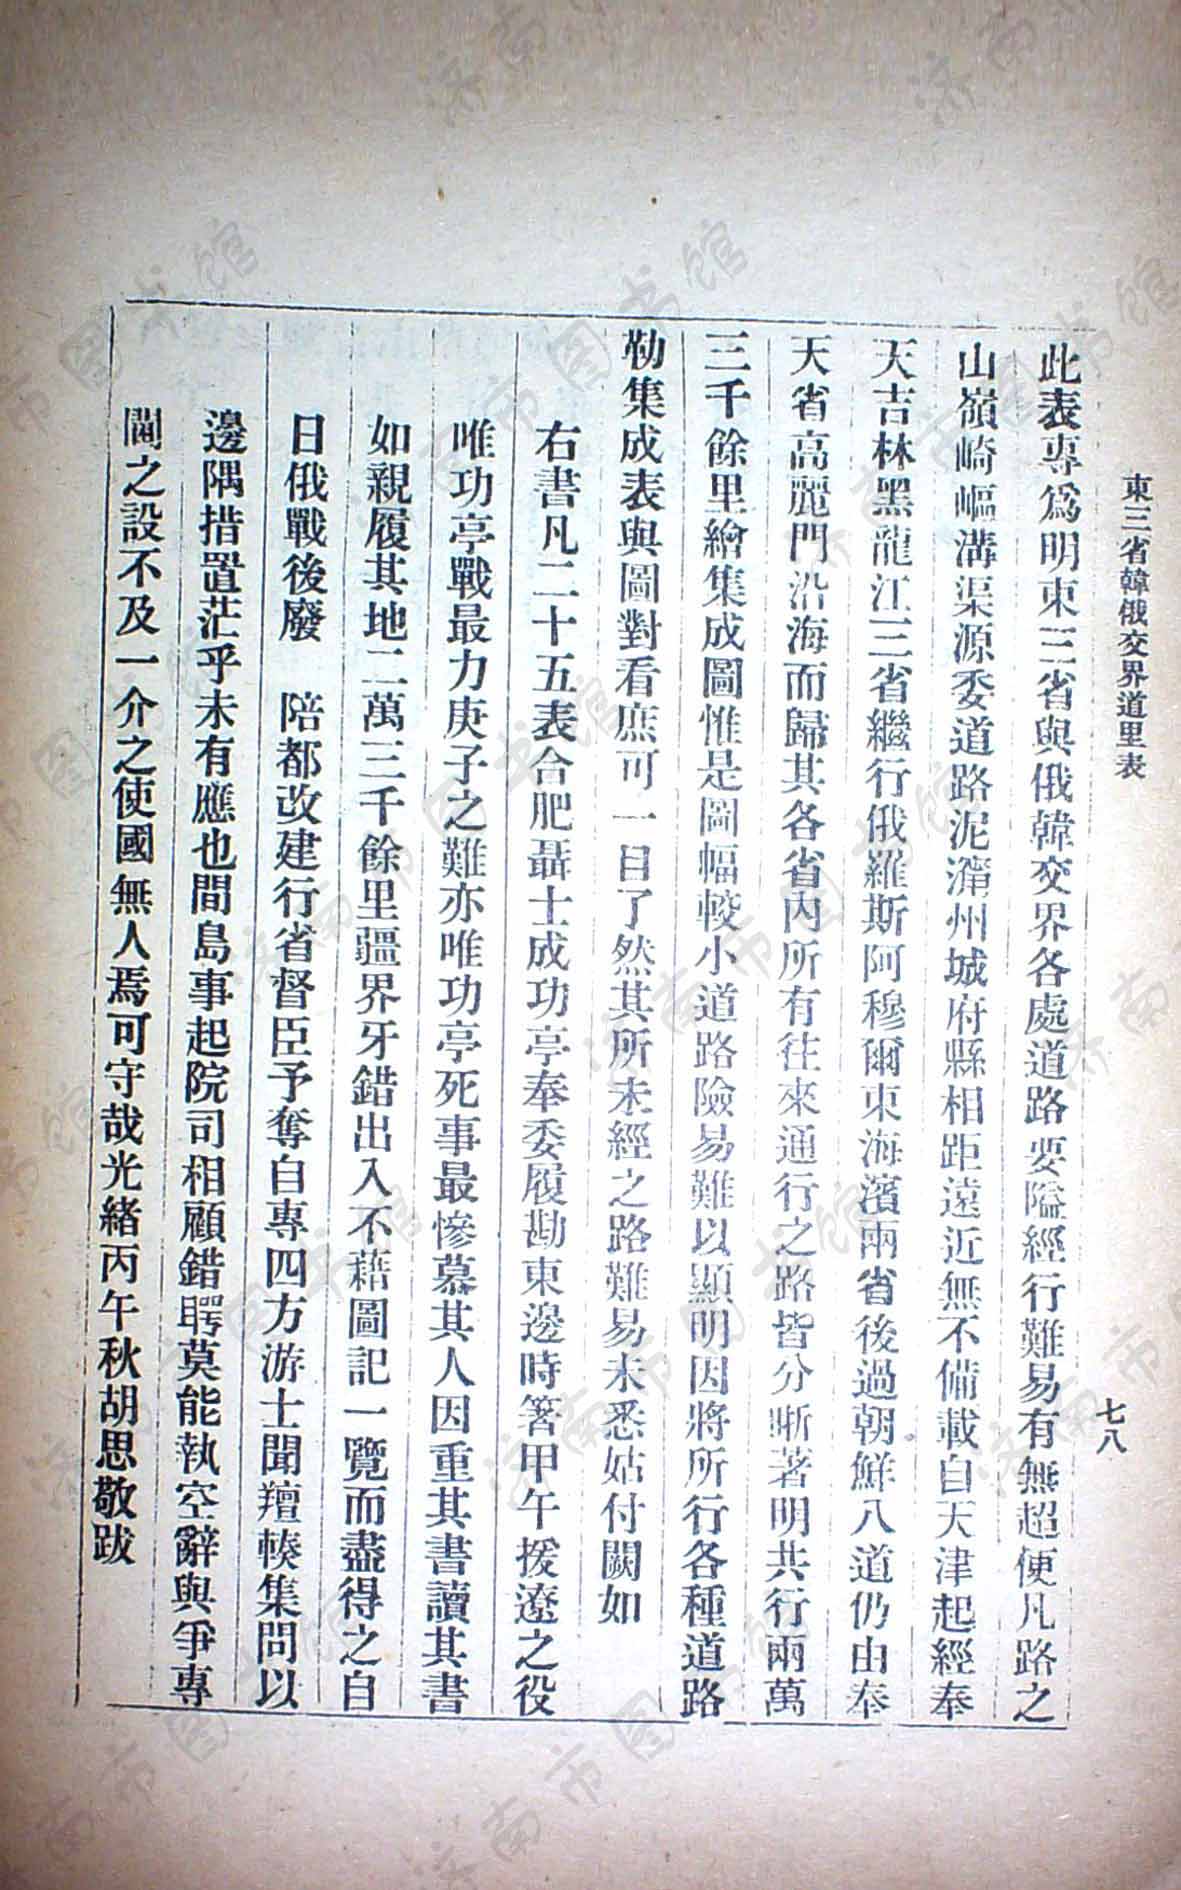 東三省韓俄交界道里表
七八
此表專爲明東三省與俄韓交界各處道路要隘經行難易有無超便凡路之
山嶺崎嶇溝渠源委道路泥濘州城府縣相距遠近無不備載自天津起經奉
天吉林黑龍江三省繼行俄羅斯阿穆爾東海濱兩省後過朝鮮八道仍由奉
天省高麗門沿海而歸其各省內所有往來通行之路皆分晰著明共行兩萬
三千餘里繪集成圖惟是圖幅較小道路險易難以顯明因將所行各種道路
勒集成表與圖對看庶可一目了然其所未經之路難易未悉姑付闕如
右書凡二十五表合肥聶士成功亭奉委履勘東邊時箸甲午援遼之役
唯功亭戰最力庚子之難亦唯功亭死事最慘慕其人因重其書讀其書
如親履其地二萬三千餘里疆界牙錯出入不藉圖記一覽而盡得之自
日俄戰後廢　陪都改建行省督臣予奪自專四方游士聞羶輳集問以
邊隅措置茫乎未有應也間島事起院司相顧錯愕莫能執空辭與爭專
閫之設不及一介之使國無人焉可守哉光緒丙午秋胡思敬跋
济南市图书馆